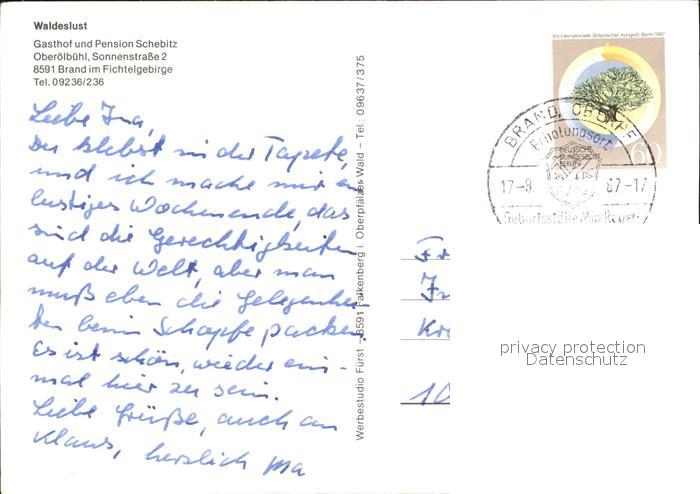 Waldeslust
Gasthof und Pension Schebitz
Oberölbühl, Sonnenstraße 2
8591 Brand im Fichtelgebirge
Tel. 09236/236
Liebe Ina,
Du klebst in der Tapete,
und ich mache mir ein
lustiges Wochenende, das
sind die Gerechtigkeiten
auf der Welt, aber man
muß eben die Gelegenhei
ten beim Schopfe packen.
Es ist schön, wieder ein-
mal hier zu sein.
Liebe Grüße, auch an
Klaus, herzlich
Werbestudio Fürst – 8591 Falkenberg i. Oberpfälzer Wald – Tel.: 09637/375
XIV. Internationaler Botanischer Kongreß Berlin 1987
DEUTSCHE
BUNDESPOST
BERLIN
60
BRAND, OBERPF
Erholungsort
17-8. 87-17
Geburtsstätte Max Reger
10
privacy protection
Datenschutz